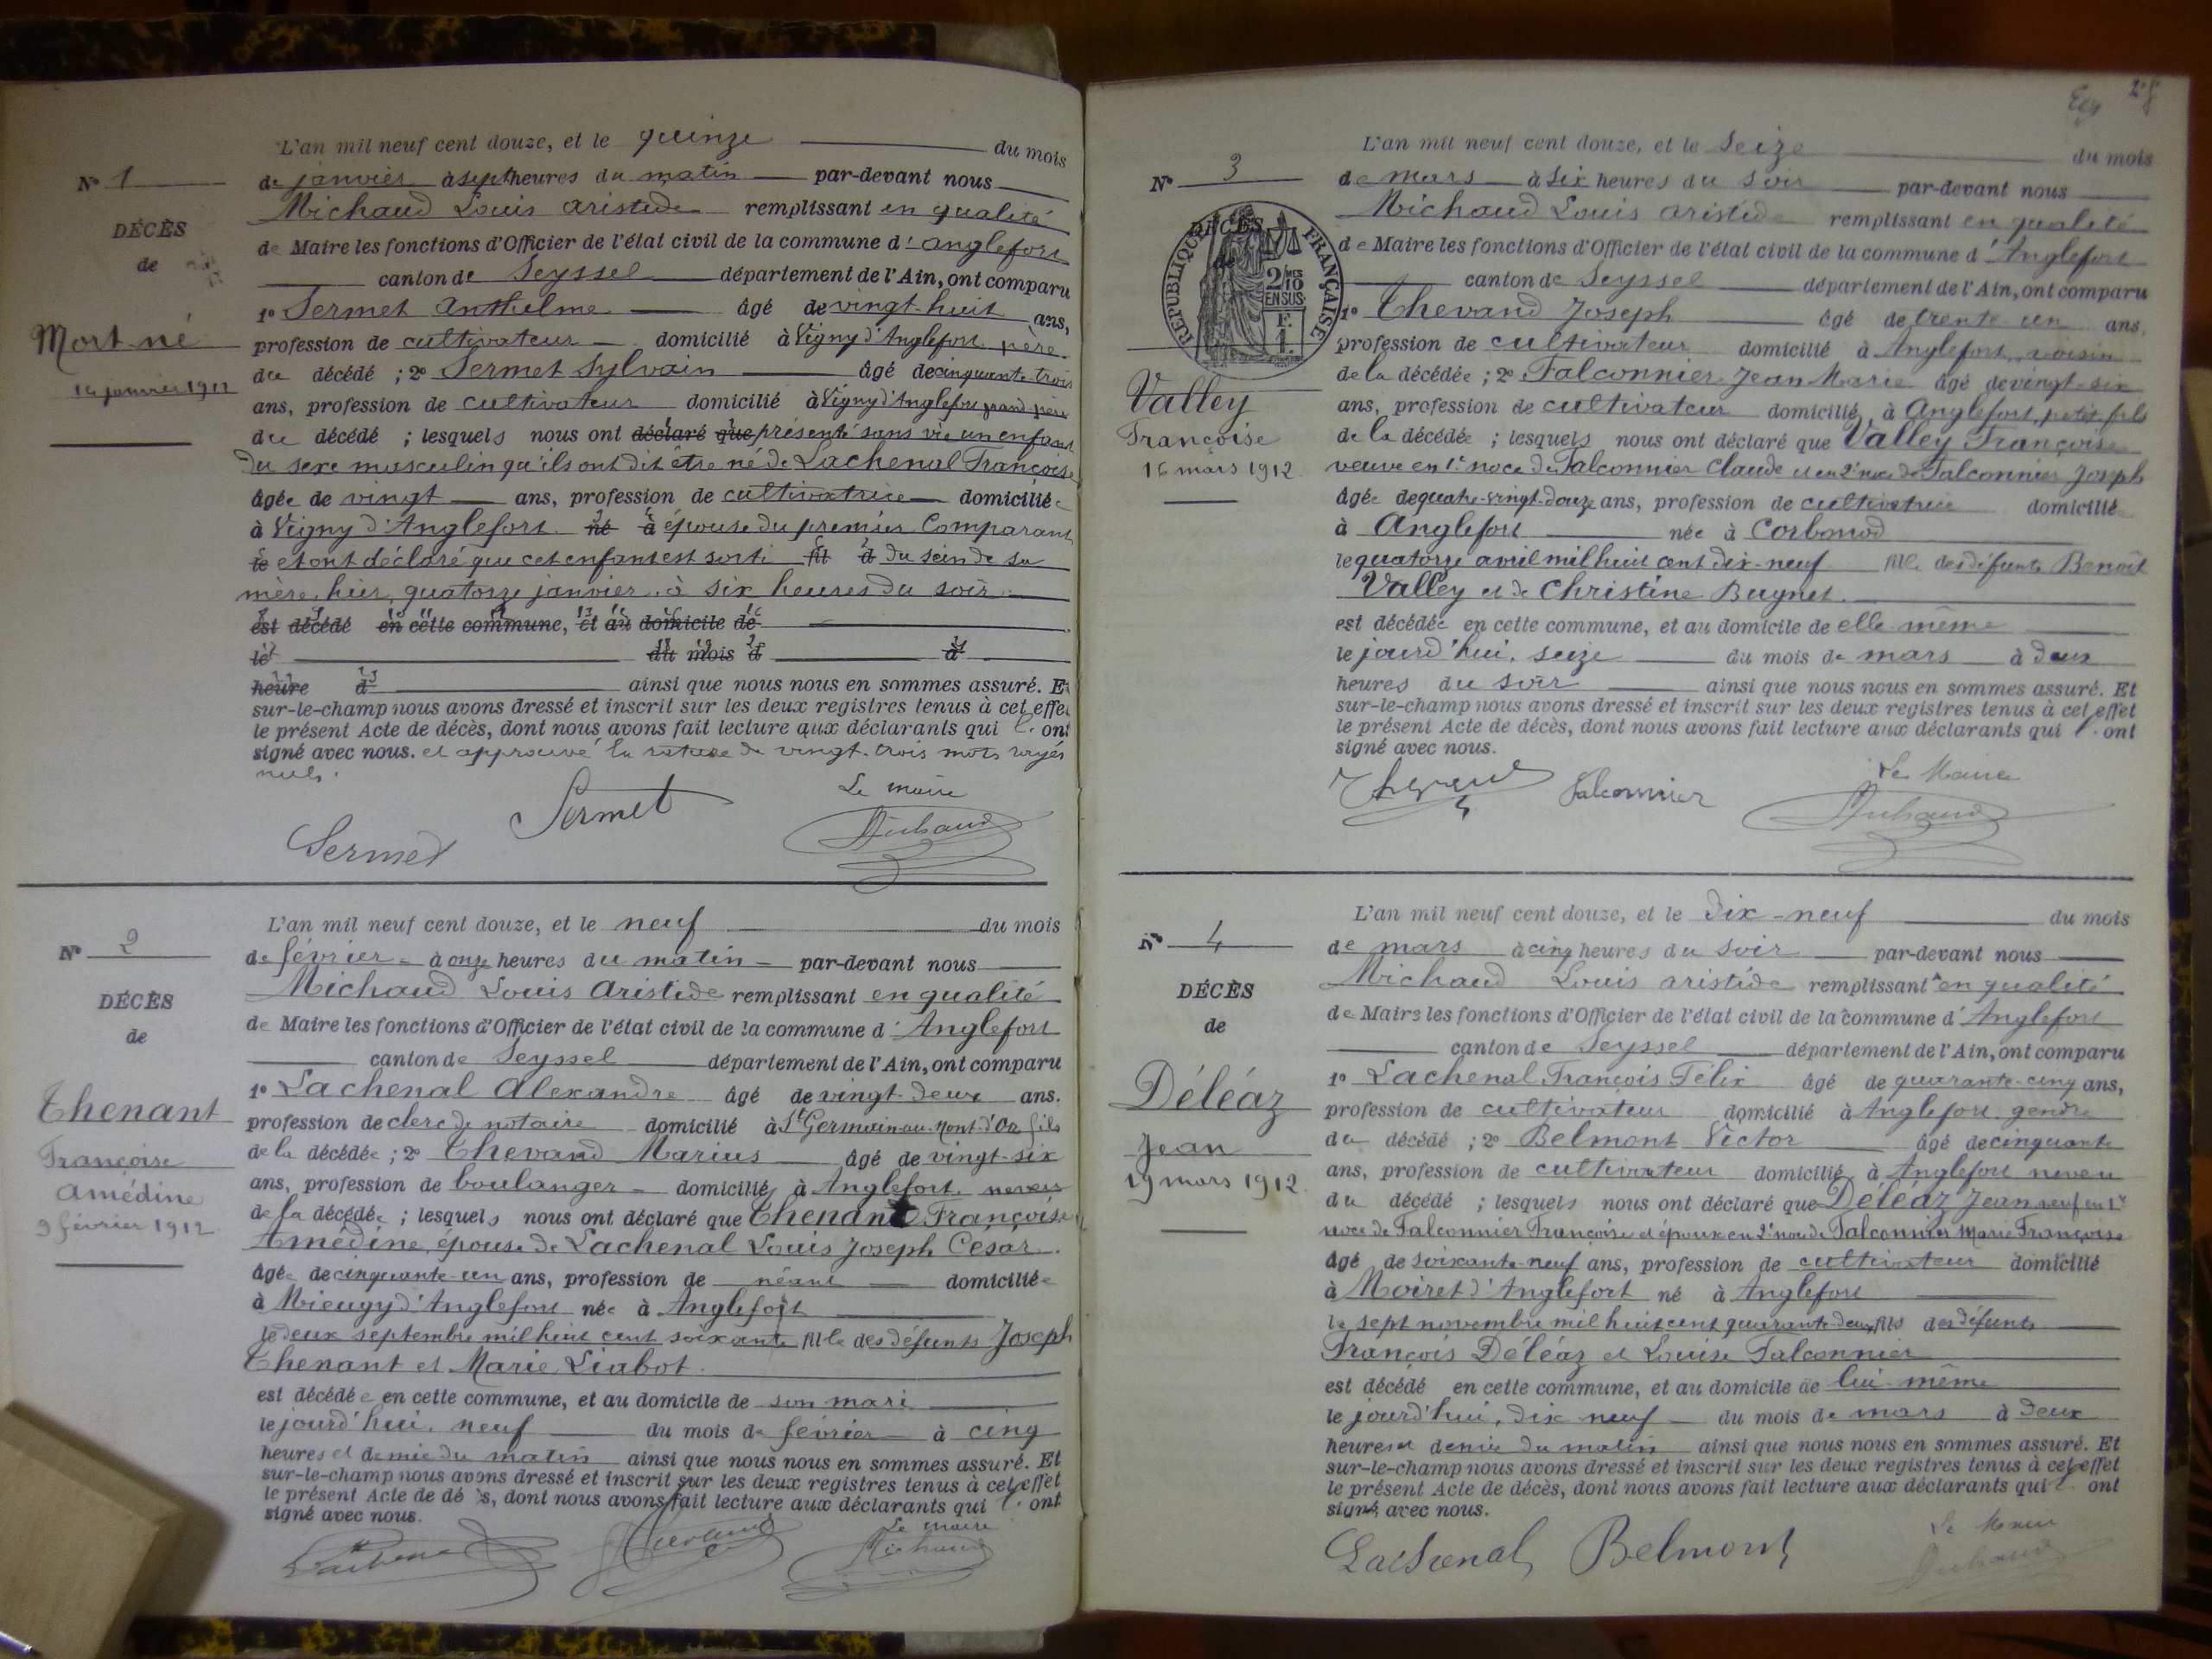 L'an mil neuf cent douze, et le quinze du mois
Nº 1
de janvier à sept heures du matin par-devant nous
Michaud Louis Aristide remplissant en qualité
DÉCÈS
de
de Maire les fonctions d'Officier de l'état civil de la commune d'Anglefort
canton de Seyssel département de l'Ain, ont comparu
1º Sermet Anthelme âgé de vingt-huit ans,
Mort-né
14 janvier 1912
profession de cultivateur domicilié à Vigny d'Anglefort père
du décédé ; 2º Sermet Sylvain âgé de cinquante-trois
ans, profession de cultivateur domicilié à Vigny d'Anglefort grand père
du décédé ; lesquels nous ont déclaré que présenté sans vie un enfant
du sexe masculin qu'ils ont dit être né de Lachenal Françoise
âgée de vingt ans, profession de cultivatrice domiciliée
à Vigny d'Anglefort né à épouse du premier Comparant
le et ont déclaré que cet enfant est sorti fil d du sein de sa
mère, hier, quatorze janvier, à six heures du soir
est décédé en cette commune, et au domicile de
le du mois d à
heure d ainsi que nous nous en sommes assuré. Et
sur-le-champ nous avons dressé et inscrit sur les deux registres tenus à cet effet
le présent Acte de décès, dont nous avons fait lecture aux déclarants qui l'ont
signé avec nous. et approuvé la rature de vingt-trois mots rayés
nuls.
Le maire
Sermet Sermet Michaud
L'an mil neuf cent douze, et le neuf du mois
Nº 2
de février à onze heures du matin par-devant nous
Michaud Louis Aristide remplissant en qualité
DÉCÈS
de
de Maire les fonctions d'Officier de l'état civil de la commune d'Anglefort
canton de Seyssel département de l'Ain, ont comparu
1º Lachenal Alexandre âgé de vingt-deux ans.
Thenant
Françoise
Amédine
9 février 1912
profession de clerc de notaire domicilié à St Germain-au-Mont-d'Or fils
de la décédée ; 2º Thevand Marius âgé de vingt-six
ans, profession de boulanger domicilié à Anglefort, neveu
de la décédée ; lesquels nous ont déclaré que Thenant Françoise
Amédine, épouse de Lachenal Louis Joseph César.
âgée de cinquante-un ans, profession de néant domiciliée
à Mieugy d'Anglefort née à Anglefort
le deux septembre mil huit cent soixante fille des défunts Joseph
Thenant et Marie Liabot.
est décédée en cette commune, et au domicile de son mari
le jourd'hui, neuf du mois de février à cinq
heures et demie du matin ainsi que nous nous en sommes assuré. Et
sur-le-champ nous avons dressé et inscrit sur les deux registres tenus à cet effet
le présent Acte de dé s, dont nous avons fait lecture aux déclarants qui l'ont
signé avec nous.
Le maire
Lachenal Thevand Michaud
28
L'an mil neuf cent douze, et le seize du mois
Nº 3
de mars à six heures du soir par-devant nous
Michaud Louis Aristide remplissant en qualité
DÉCÈS
de
RÉPUBLIQUE FRANÇAISE
2/10
EN SUS
de Maire les fonctions d'Officier de l'état civil de la commune d'Anglefort
canton de Seyssel département de l'Ain, ont comparu
1º Thevand Joseph âgé de trente-un ans,
profession de cultivateur domicilié à Anglefort, voisin
de la décédée ; 2º Falconnier Jean Marie âgé de vingt-six
Valley
Françoise
16 mars 1912
ans, profession de cultivateur domicilié à Anglefort, petit-fils
de la décédée ; lesquels nous ont déclaré que Valley Françoise
veuve en 1e noce de Falconnier Claude et en 2e noce de Falconnier Joseph
âgée de quatre-vingt-douze ans, profession de cultivatrice domicilié
à Anglefort née à Corbonod
le quatorze avril mil huit cent dix-neuf fille des défunts Benoit
Valley et de Christine Buynet.
est décédée en cette commune, et au domicile de elle-même
le jourd'hui, seize du mois de mars à deux
heures du soir ainsi que nous nous en sommes assuré. Et
sur-le-champ nous avons dressé et inscrit sur les deux registres tenus à cet effet
le présent Acte de décès, dont nous avons fait lecture aux déclarants qui l'ont
signé avec nous.
Le Maire
Falconnier Michaud
L'an mil neuf cent douze, et le dix-neuf du mois
Nº 4
de mars à cinq heures du soir par-devant nous
Michaud Louis Aristide remplissant en qualité
DÉCÈS
de
de Maire les fonctions d'Officier de l'état civil de la commune d'Anglefort
canton de Seyssel département de l'Ain, ont comparu
1º Lachenal François Félix âgé de quarante-cinq ans,
Déléaz
Jean
19 mars 1912
profession de cultivateur domicilié à Anglefort gendre
du décédé ; 2º Belmont Victor âgé de cinquante
ans, profession de cultivateur domicilié à Anglefort neveu
du décédé ; lesquels nous ont déclaré que Déléaz Jean veuf en 1e
noce de Falconnier Françoise et époux en 2e noce de Falconnier Marie Françoise
âgé de soixante-neuf ans, profession de cultivateur domicilié
à Moiret d'Anglefort né à Anglefort
le sept novembre mil huit cent quarante-deux fils des défunts
François Déléaz et Louise Falconnier
est décédé en cette commune, et au domicile de lui-même
le jourd'hui, dix neuf du mois de mars à deux
heures et demie du matin ainsi que nous nous en sommes assuré. Et
sur-le-champ nous avons dressé et inscrit sur les deux registres tenus à cet effet
le présent Acte de décès, dont nous avons fait lecture aux déclarants qui l'ont
signé avec nous.
Le Maire
Lachenal Belmont Michaud